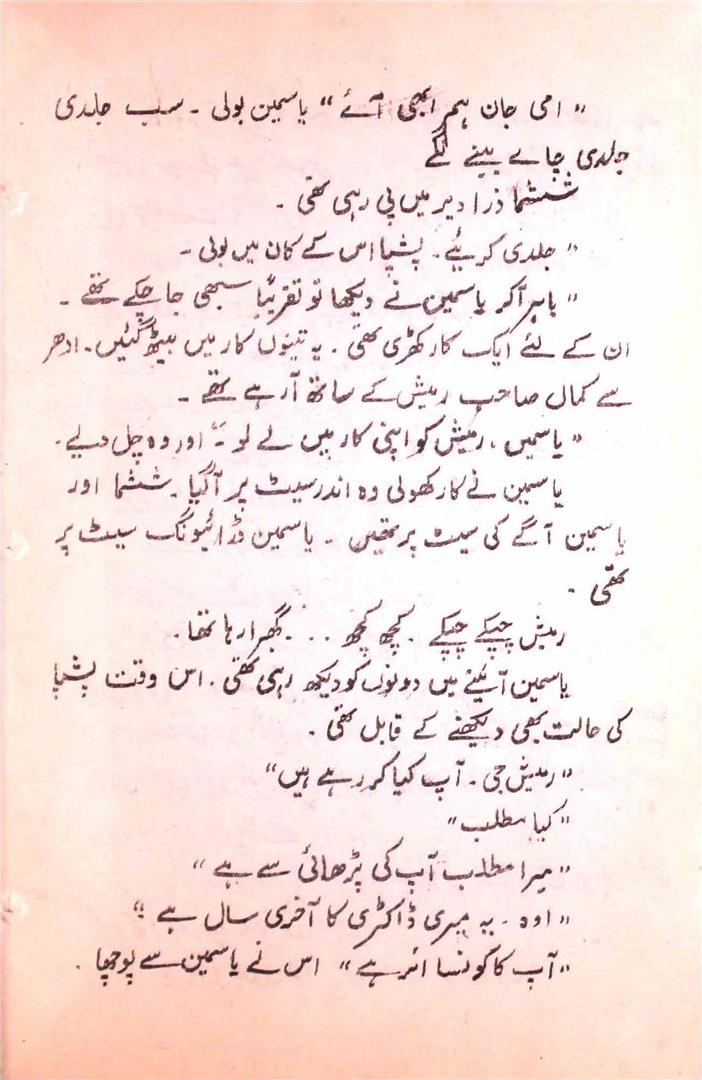 " امی جان ہم ابھی آئے " یاسمین بولی ۔ سب جلدی
جلدی چاے پینے لگے
ششما ذرا دیر میں پی رہی تھی ۔
" جلدی کریئے ۔ پشپا اس کے کان میں بولی ۔
" باہر آکر یاسمین نے دیکھا تو تقریباً سبھی جا چکے تھے ۔
ان کے لئے ایک کار کھڑی تھی ۔ یہ تینوں کار میں بیٹھ گئیں ۔ ادھر
سے کمال صاحب رمیش کے ساتھ آرہے تھے ۔
" یاسمیں ، رمیش کو اپنی کار میں لے لو ۔" اور وہ چل دیے ۔
یاسمین نے کار کھولی وہ اندر سیٹ پر آگیا ۔ ششما اور
یاسمین آگے کی سیٹ پر تھیں ۔ یاسمین ڈرائیونگ سیٹ پر
تھی ۔
رمیش چپکے چپکے ۔ کچھ کچھ . . . گھبرا رہا تھا ۔
یاسمین آئینے میں دونوں کو دیکھ رہی تھی ۔ اس وقت پشپا
کی حالت بھی دیکھنے کے قابل تھی ۔
" رمیش جی ۔ آپ کیا کر رہے ہیں "
" کیا مطلب "
" میرا مطلب آپ کی پڑھائی سے ہے "
" اوہ ۔ یہ میری ڈاکٹری کا آخری سال ہے ؛"
" آپ کا کونسا ائر ہے " اس نے یاسمین سے پوچھا ۔